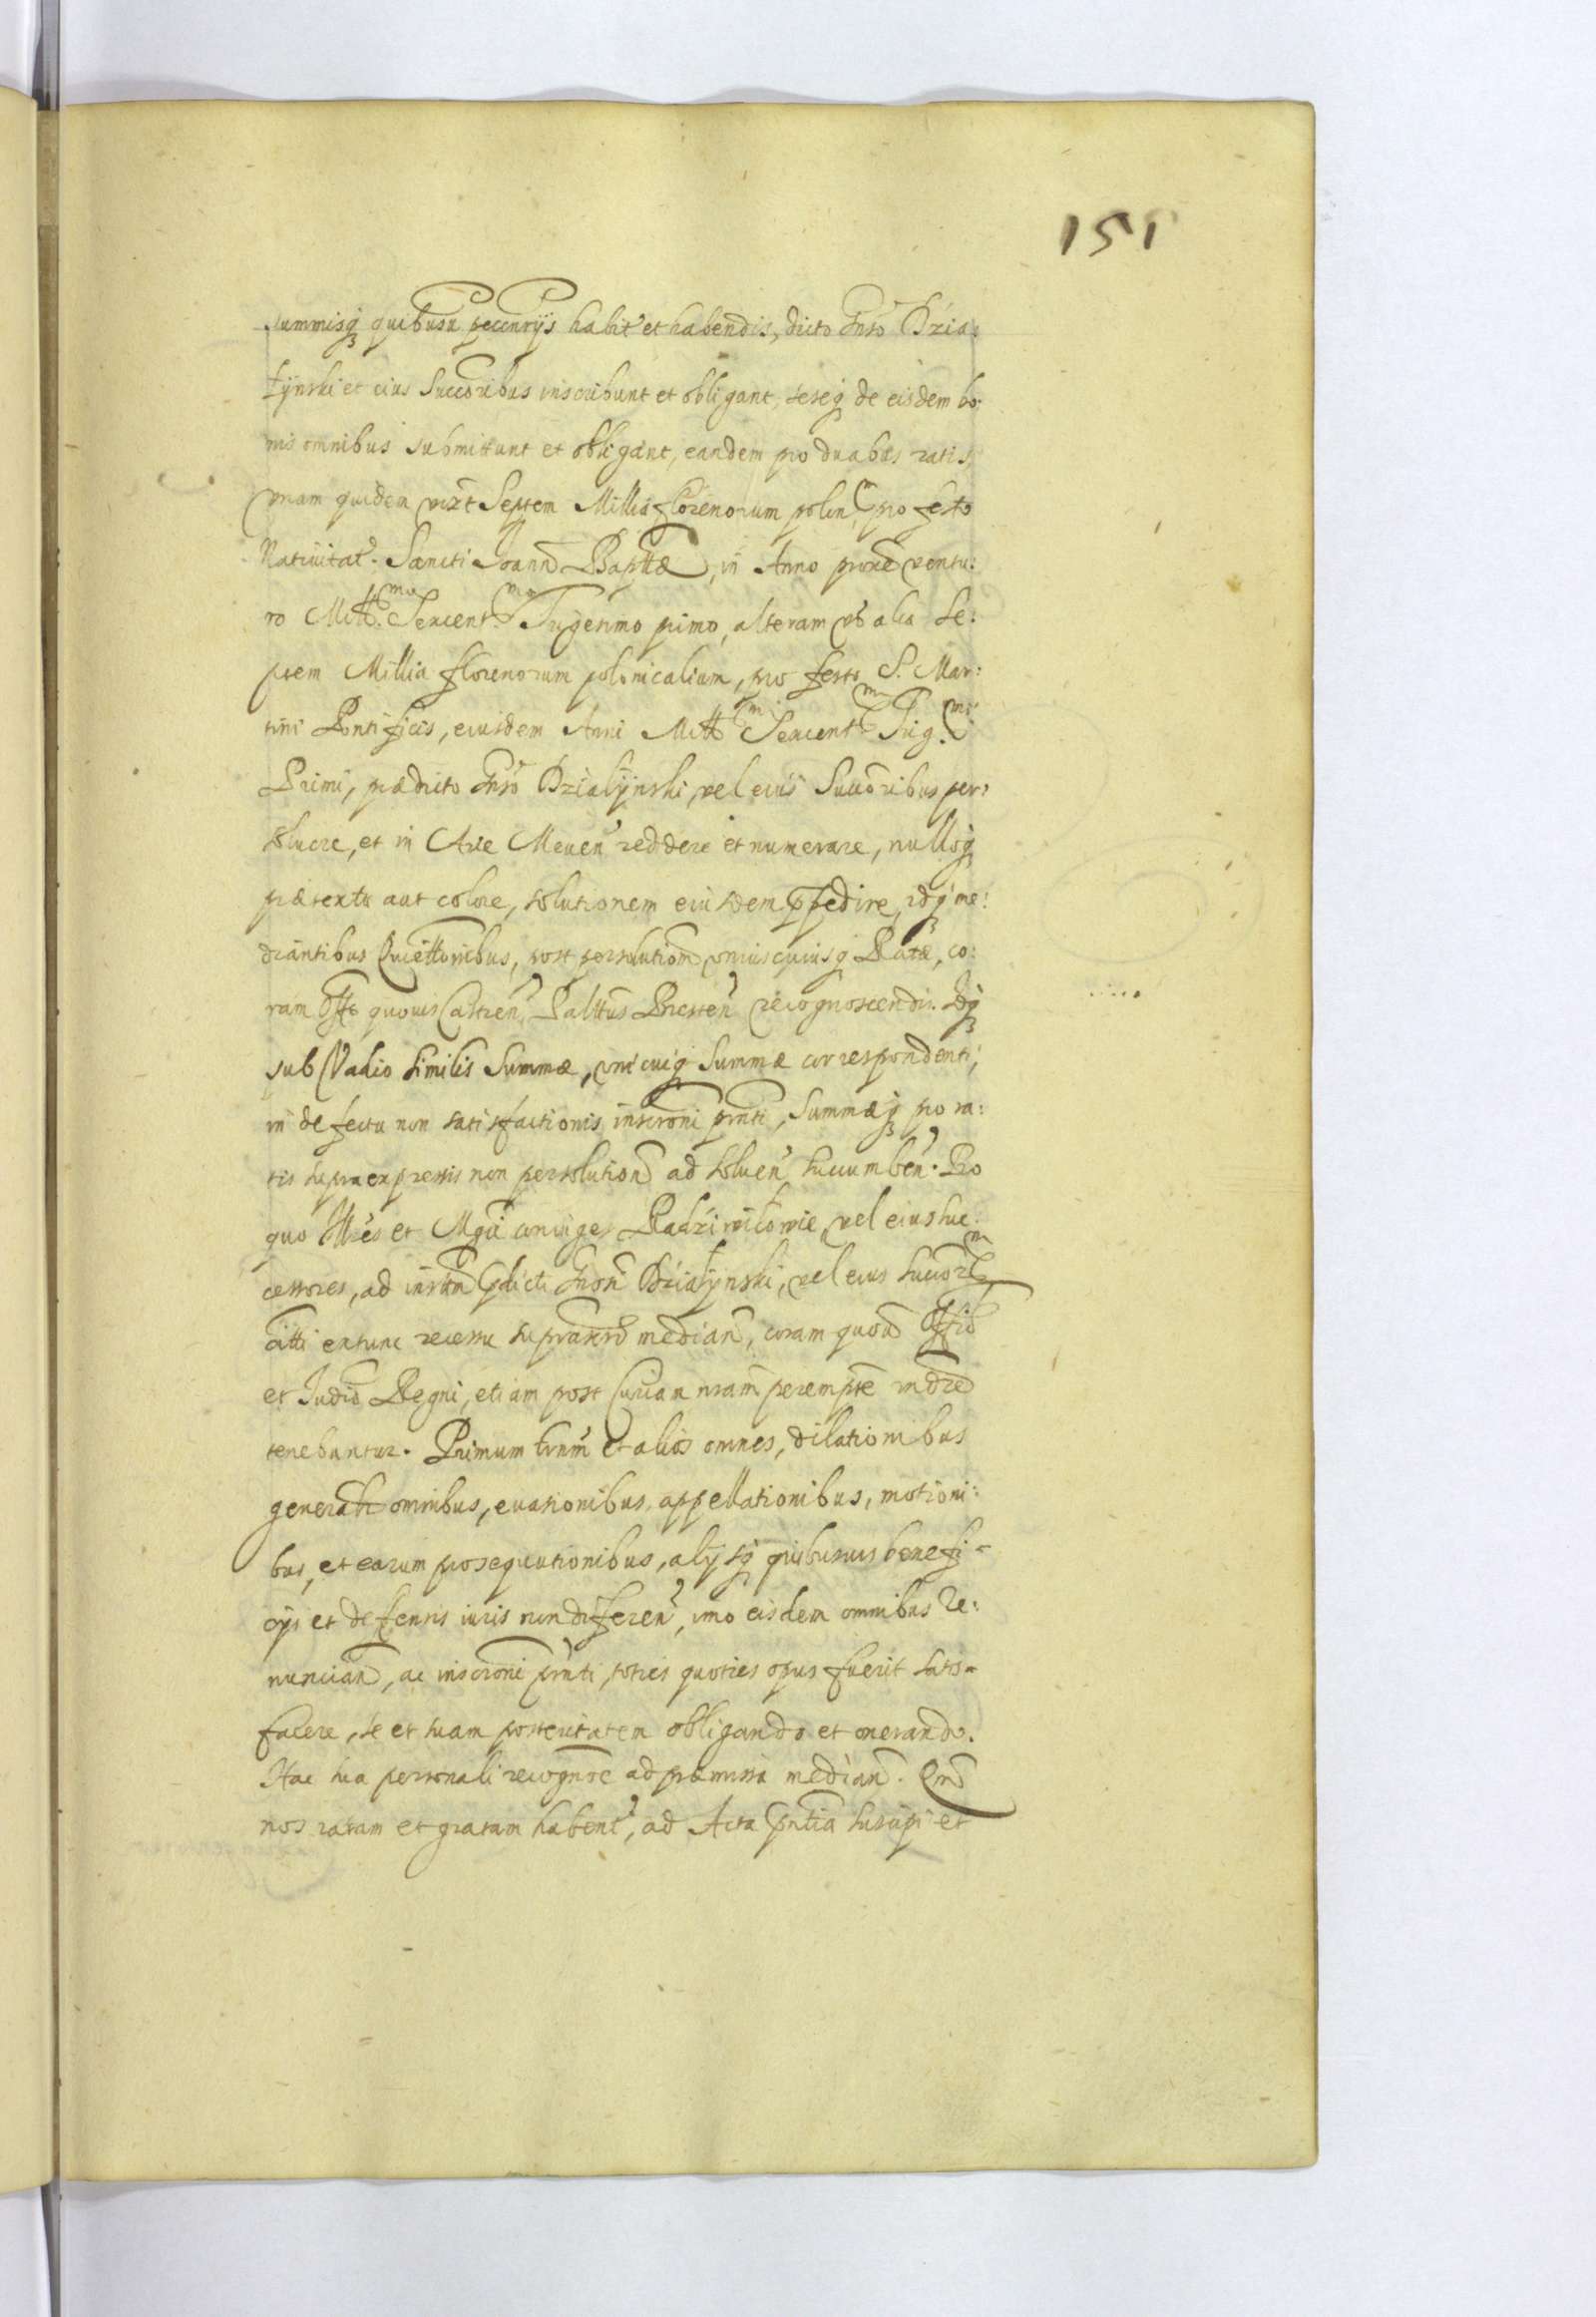 151
summisq quibusu pecunrijs habit et habendis, dicto Gnso Dzia:
łÿnski et eius Succoribus inscribunt et obligant, seseq de eisdem bo:
nis omnibus submittunt et obligant, eandem pro duabus ratis,
vnam quidem vizt Septem Millia florenorum polon, pro festo
Natiuitat. Sancti Joann Baptæ, in Anno proxe ventu:
ro Mill.mo Sexcent.mo Trigesimo primo, alteram vo alia Se:
ptem Millia florenorum polonicalium, pro festo S. Mar:
tini Pontificis, eiusdem Anni Mill.mi Sexcent.mi Trig.mi
Primi, prædicto Gnso Działÿnski, vel eius Succoribus per:
soluere, et in Arce Meuen reddere et numerare, nulloq
prætextu aut colore, solutionem eiusdem impedire, idq me:
diantibus Quiettonibus, post persolutiom vniuscuiusq Ratæ, co:
ram Offo quouis Castren Palttus Bresten recognoscendis. Idq
sub Vadio similis Summæ, vnicuiq Summæ correspondenti,
in defectu non satisfactionis inscroni prnti, Summæq pro ra:
tis supra expressis non persolution ad soluen succumben. Pro
quo Illres et Mgci coniuges Radziwiłowie vel eius suc:
cessores, ad instan pdicti Gnosi Działÿnski, vel eius succor
citti extunc recessu suprascro median, coram quouis Offio
et Judio Regni, etiam post Curiam nram perempte rndre
tenebuntur. Primum trnm et alios omnes, dilationibus
generalr omnibus, euasionibus, appellationibus, motioni:
bus, et earum prosequutionibus, alijsq quibusuis benefi=
cijs et defensis iuris non differen, imo eisdem omnibus re:
nuncian, ac inscroni prnti, toties quoties opus fuerit satis=
facere, se et suam posteritatem obligando et onerando.
Hac sua personali recognoe ad præmissa median. Qm
nos ratam et gratam habent, ad Acta prntia suscipi et